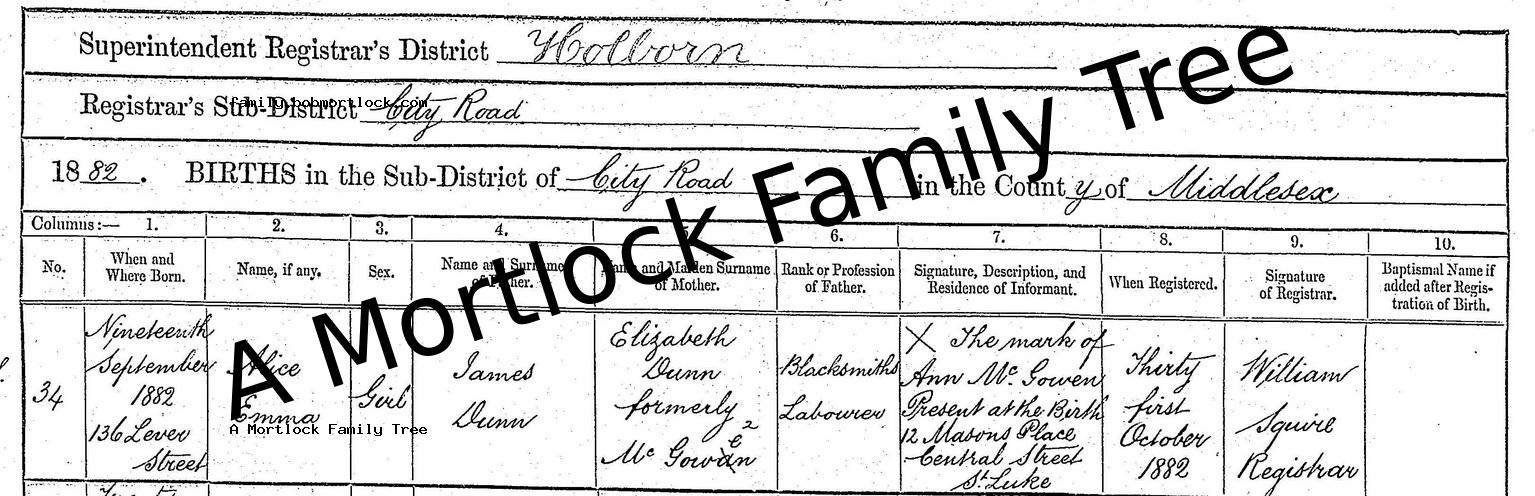 Superintendent Registrar's District Holborn
family.bobmortlock.com
Registrar's Sub-District City Road
1882. BIRTHS in the Sub-District of City Road in the County of Middlesex
A Mortlock Family Tree
Columns:— 1. 2. 3. 4. 5. 6. 7. 8. 9. 10.
No.
When and
Where Born.
Name, if any.
Sex.
Name and Surname
of Father.
Name and Maiden Surname
of Mother.
Rank or Profession
of Father.
Signature, Description, and
Residence of Informant.
When Registered.
Signature
of Registrar.
Baptismal Name if
added after Regis-
tration of Birth.
34
Nineteenth
September
1882
136 Lever
Street
Alice
Emma
Girl
James
Dunn
Elizabeth
Dunn
formerly
Mc Gowen
Blacksmiths
Labourer
X The mark of
Ann Mc Gowen
Present at the Birth
12 Masons Place
Central Street
St Luke
Thirty
first
October
1882
William
Squire
Registrar
A Mortlock Family Tree